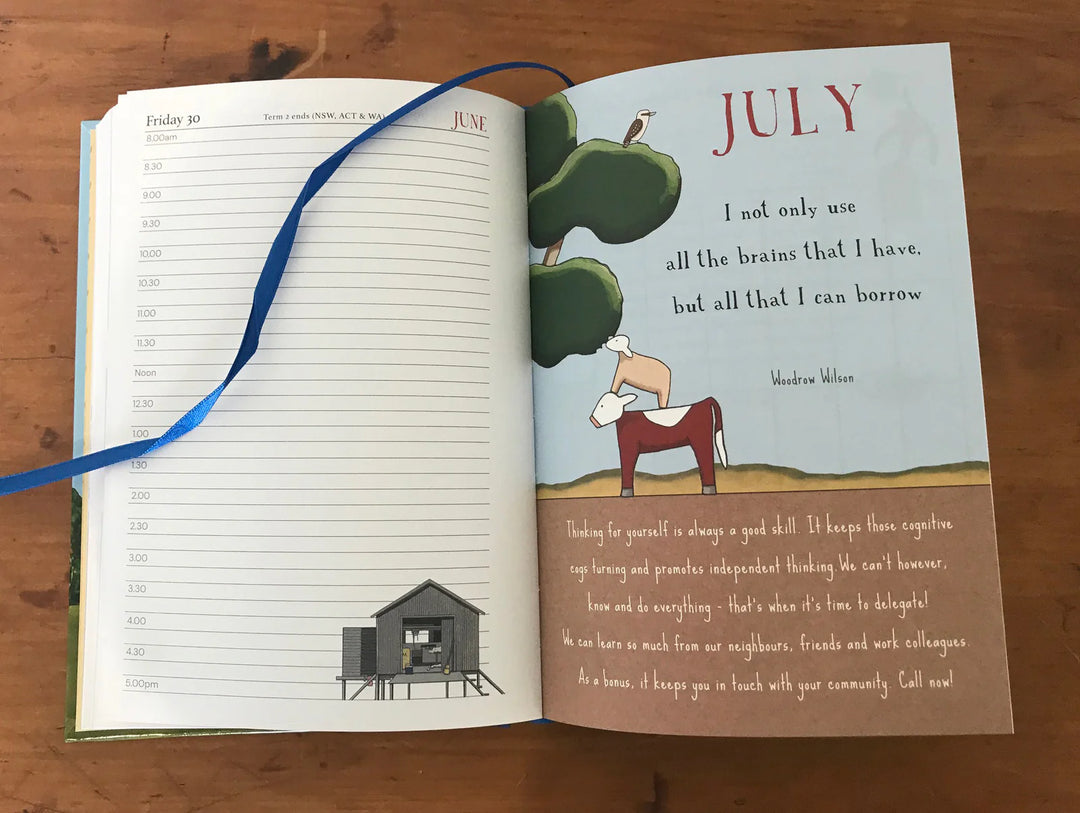 Friday 30
Term 2 ends (NSW, ACT & WA)
JUNE
8.00am
8.30
9.00
9.30
10.00
10.30
11.00
11.30
Noon
12.30
1.00
1.30
2.00
2.30
3.00
3.30
4.00
4.30
5.00pm
JULY
I not only use
all the brains that I have,
but all that I can borrow
Woodrow Wilson
Thinking for yourself is always a good skill. It keeps those cognitive
cogs turning and promotes independent thinking. We can't however,
know and do everything - that's when it's time to delegate!
We can learn so much from our neighbours, friends and work colleagues.
As a bonus, it keeps you in touch with your community. Call now!